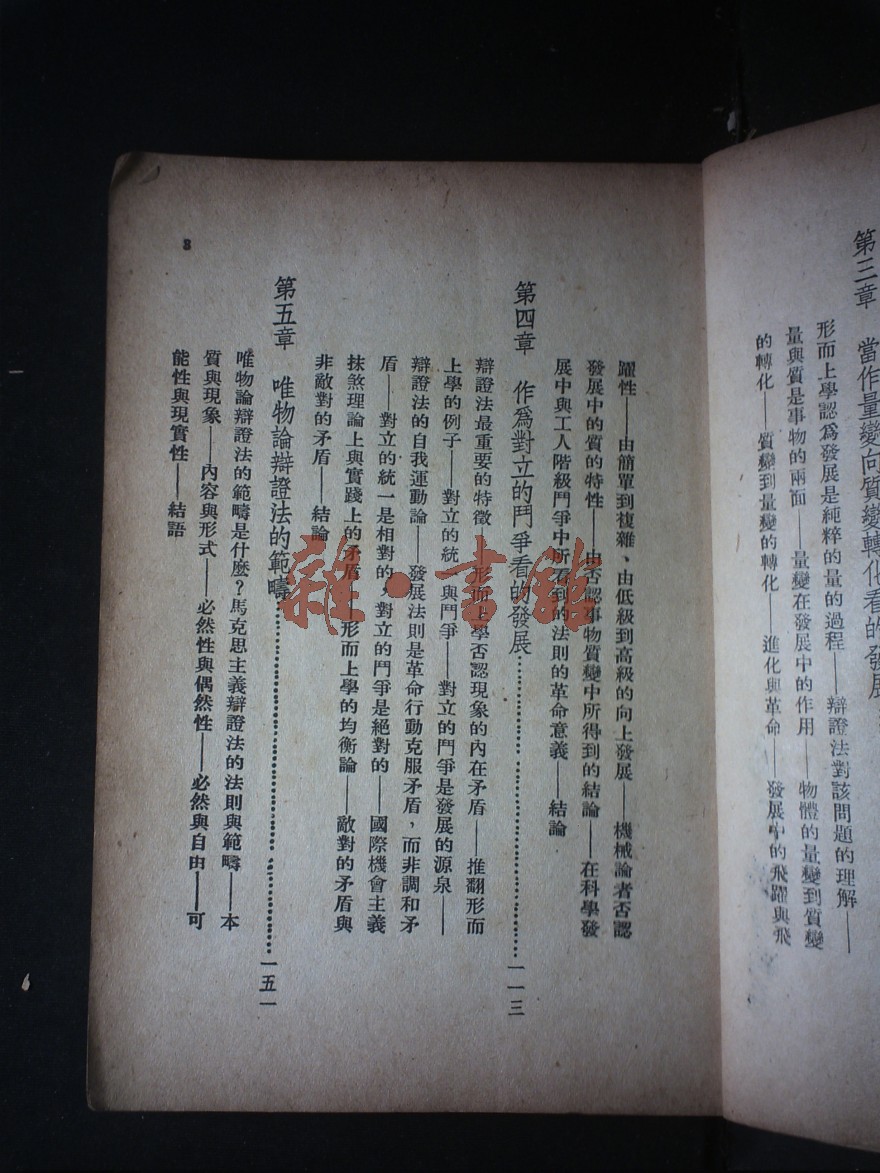 第三章　當作量變向質變轉化看的發展
形而上學認爲發展是純粹的量的過程——辯證法對該問題的理解——
量與質是事物的兩面——量變在發展中的作用——物體的量變到質變
的轉化——質變到量變的轉化——進化與革命——發展中的飛躍與飛
躍性——由簡單到複雜、由低級到高級的向上發展——機械論者否認
發展中的質的特性——由否認事物質變中所得到的結論——在科學發
展中與工人階級鬥爭中所看到的法則的革命意義——結論
第四章　作爲對立的鬥爭看的發展…………一一三
辯證法最重要的特徵——形而上學否認現象的內在矛盾——推翻形而
上學的例子——對立的統一與鬥爭——對立的鬥爭是發展的源泉——
辯證法的自我運動論——發展法則是革命行動克服矛盾，而非調和矛
盾——對立的統一是相對的，對立的鬥爭是絕對的——國際機會主義
抹煞理論上與實踐上的矛盾——形而上學的均衡論——敵對的矛盾與
非敵對的矛盾——結論
第五章　唯物論辯證法的範疇…………一五一
唯物論辯證法的範疇是什麼？馬克思主義辯證法的法則與範疇——本
質與現象——內容與形式——必然性與偶然性——必然與自由——可
能性與現實性——結語
3
雜·書館